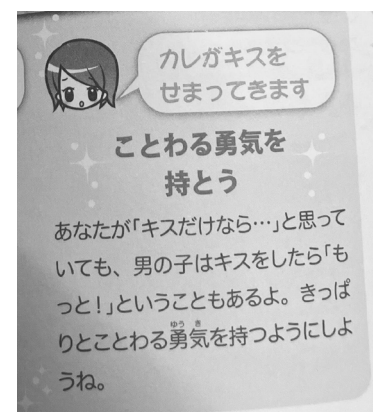 カレがキスを
せまってきます
ことわる勇気を
持とう
あなたが「キスだけなら…」と思って
いても、男の子はキスをしたら「も
っと!」ということもあるよ。きっぱ
りとことわる勇気を持つようにしよ
うね。